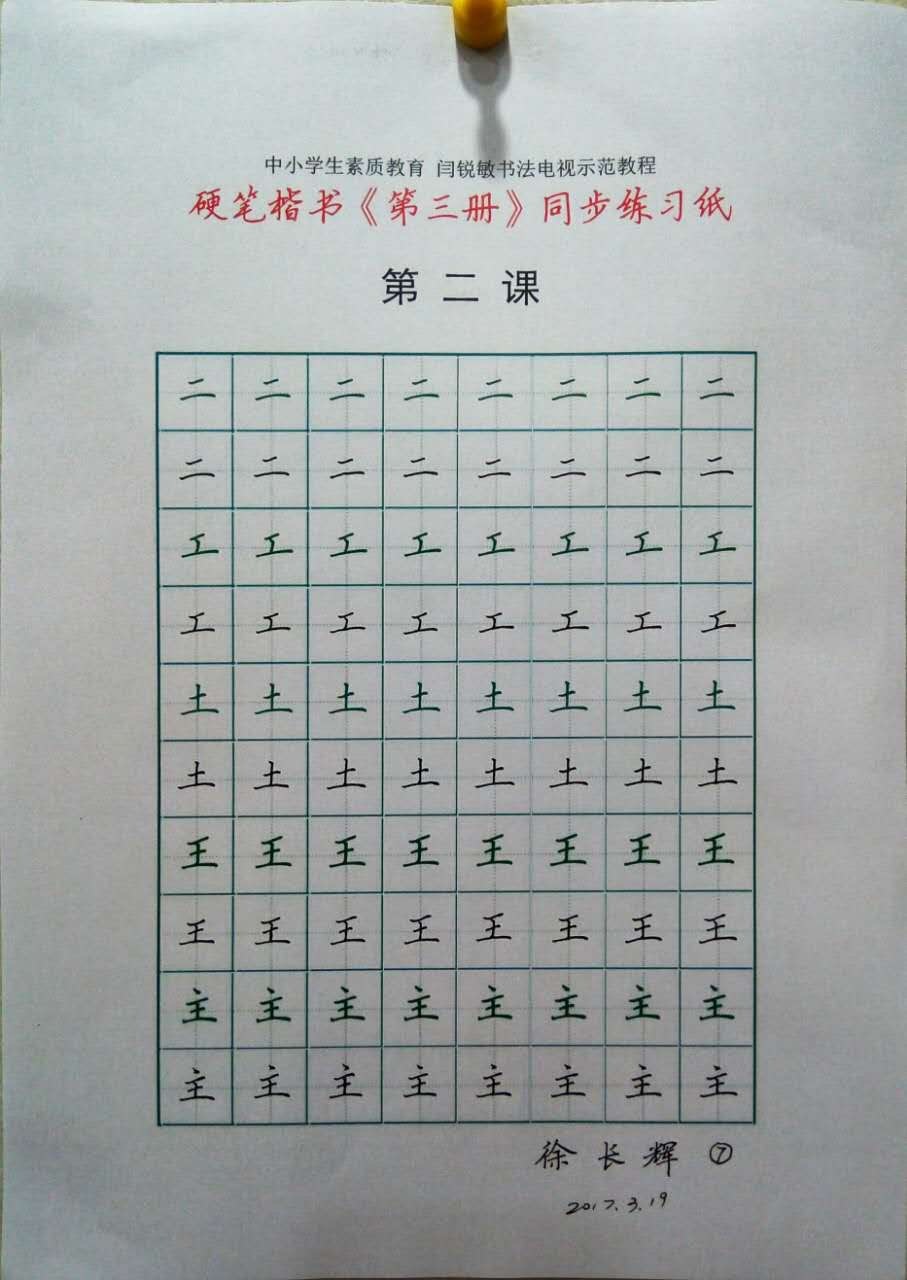 中小学生素质教育 闫锐敏书法电视示范教程
硬笔楷书《第三册》同步练习纸
第二课
二二二二二二二二
二二二二二二二二
工工工工工工工工
工工工工工工工工
土土土土土土土土
土土土土土土土土
王王王王王王王王
王王王王王王王王
主主主主主主主主
主主主主主主主主
徐长辉 ⑦
2017.3.19